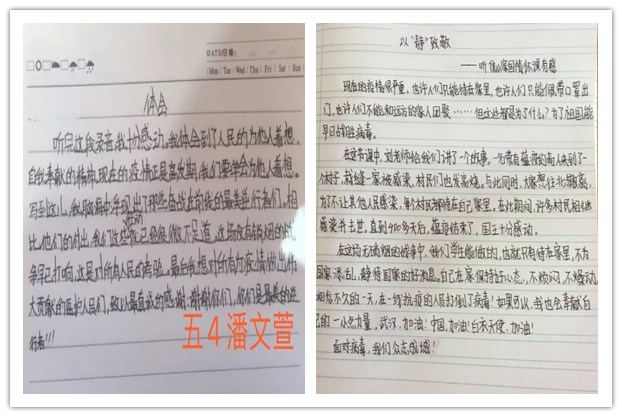 DATE/日期:
Mon Tue Wed Thu Fri Sat Sun
体会
听完这段录音,我十分感动。我体会到了人民的为他人着想,
自我奉献的精神。现在的疫情正是高发期,我们要学会为他人着想。
写到这儿,我脑海中浮现出了那些奋战在前线的最美逆行者们,相
比他们的付出,我们这些
微不足道。这场没有硝烟的战
争早已打响,这是对所有人民的考验。最后我想对所有为疫情做出伟
大贡献的医护人民们,致以最真诚的感谢:谢谢你们,你们是最美的逆
行者!!!
五4潘文萱
以“静”致敬
——听《家国情怀》课有感
现在的疫情很严重,也许人们只能待在家里,也许人们只能佩带口罩出
门,也许人们不能和远方的家人团聚……但这些都是为了什么?为了祖国能
早日战胜病毒。
在这节课中,刘老师给我们讲了一个故事,一位带有
的商人来到了一
个村子,裁缝一家被感染,村民们也发高烧。与此同时,大家想往北撤离,
为了不让其他人民感染,每个村民都待在自己家里。在此期间,许多村民相继
感染并去世,直到400多天后,
结束了,国王十分感动。
在这场无硝烟的战争中,我们学生能做的,也就只有待在家里,不为
国家添乱,静待国家的好消息。自己在家保持好心态,不烦闷,不躁动,
相信不久的一天,在一线抗疫的人员打倒了病毒!如果可以,我也会奉献自
己的一小份力量,武汉,加油!中国,加油!白衣天使,加油!
面对病毒,我们众志成城!